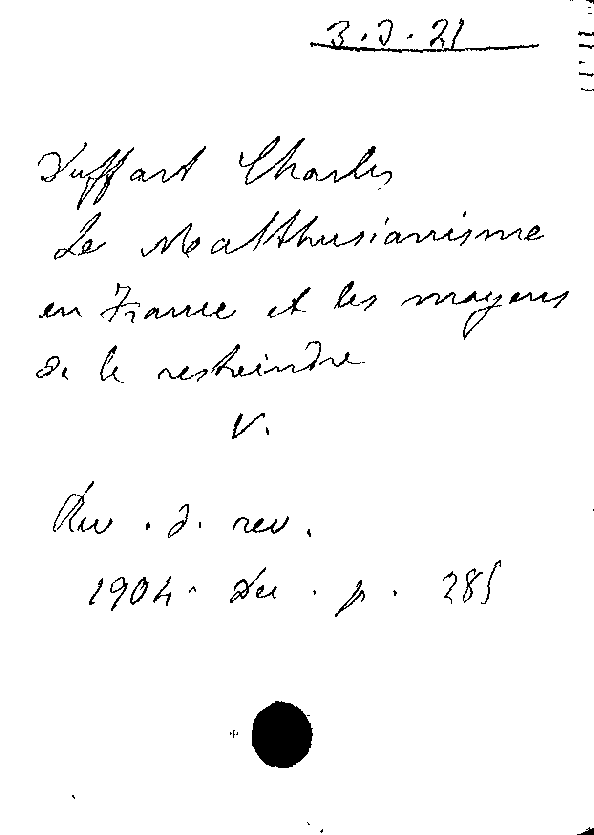 3.d.21
Duffart Charles
Le Malthusianisme
en France et les moyens
de le restreindre
V.
Rev. d. rev.
1904. Dec. p. 285